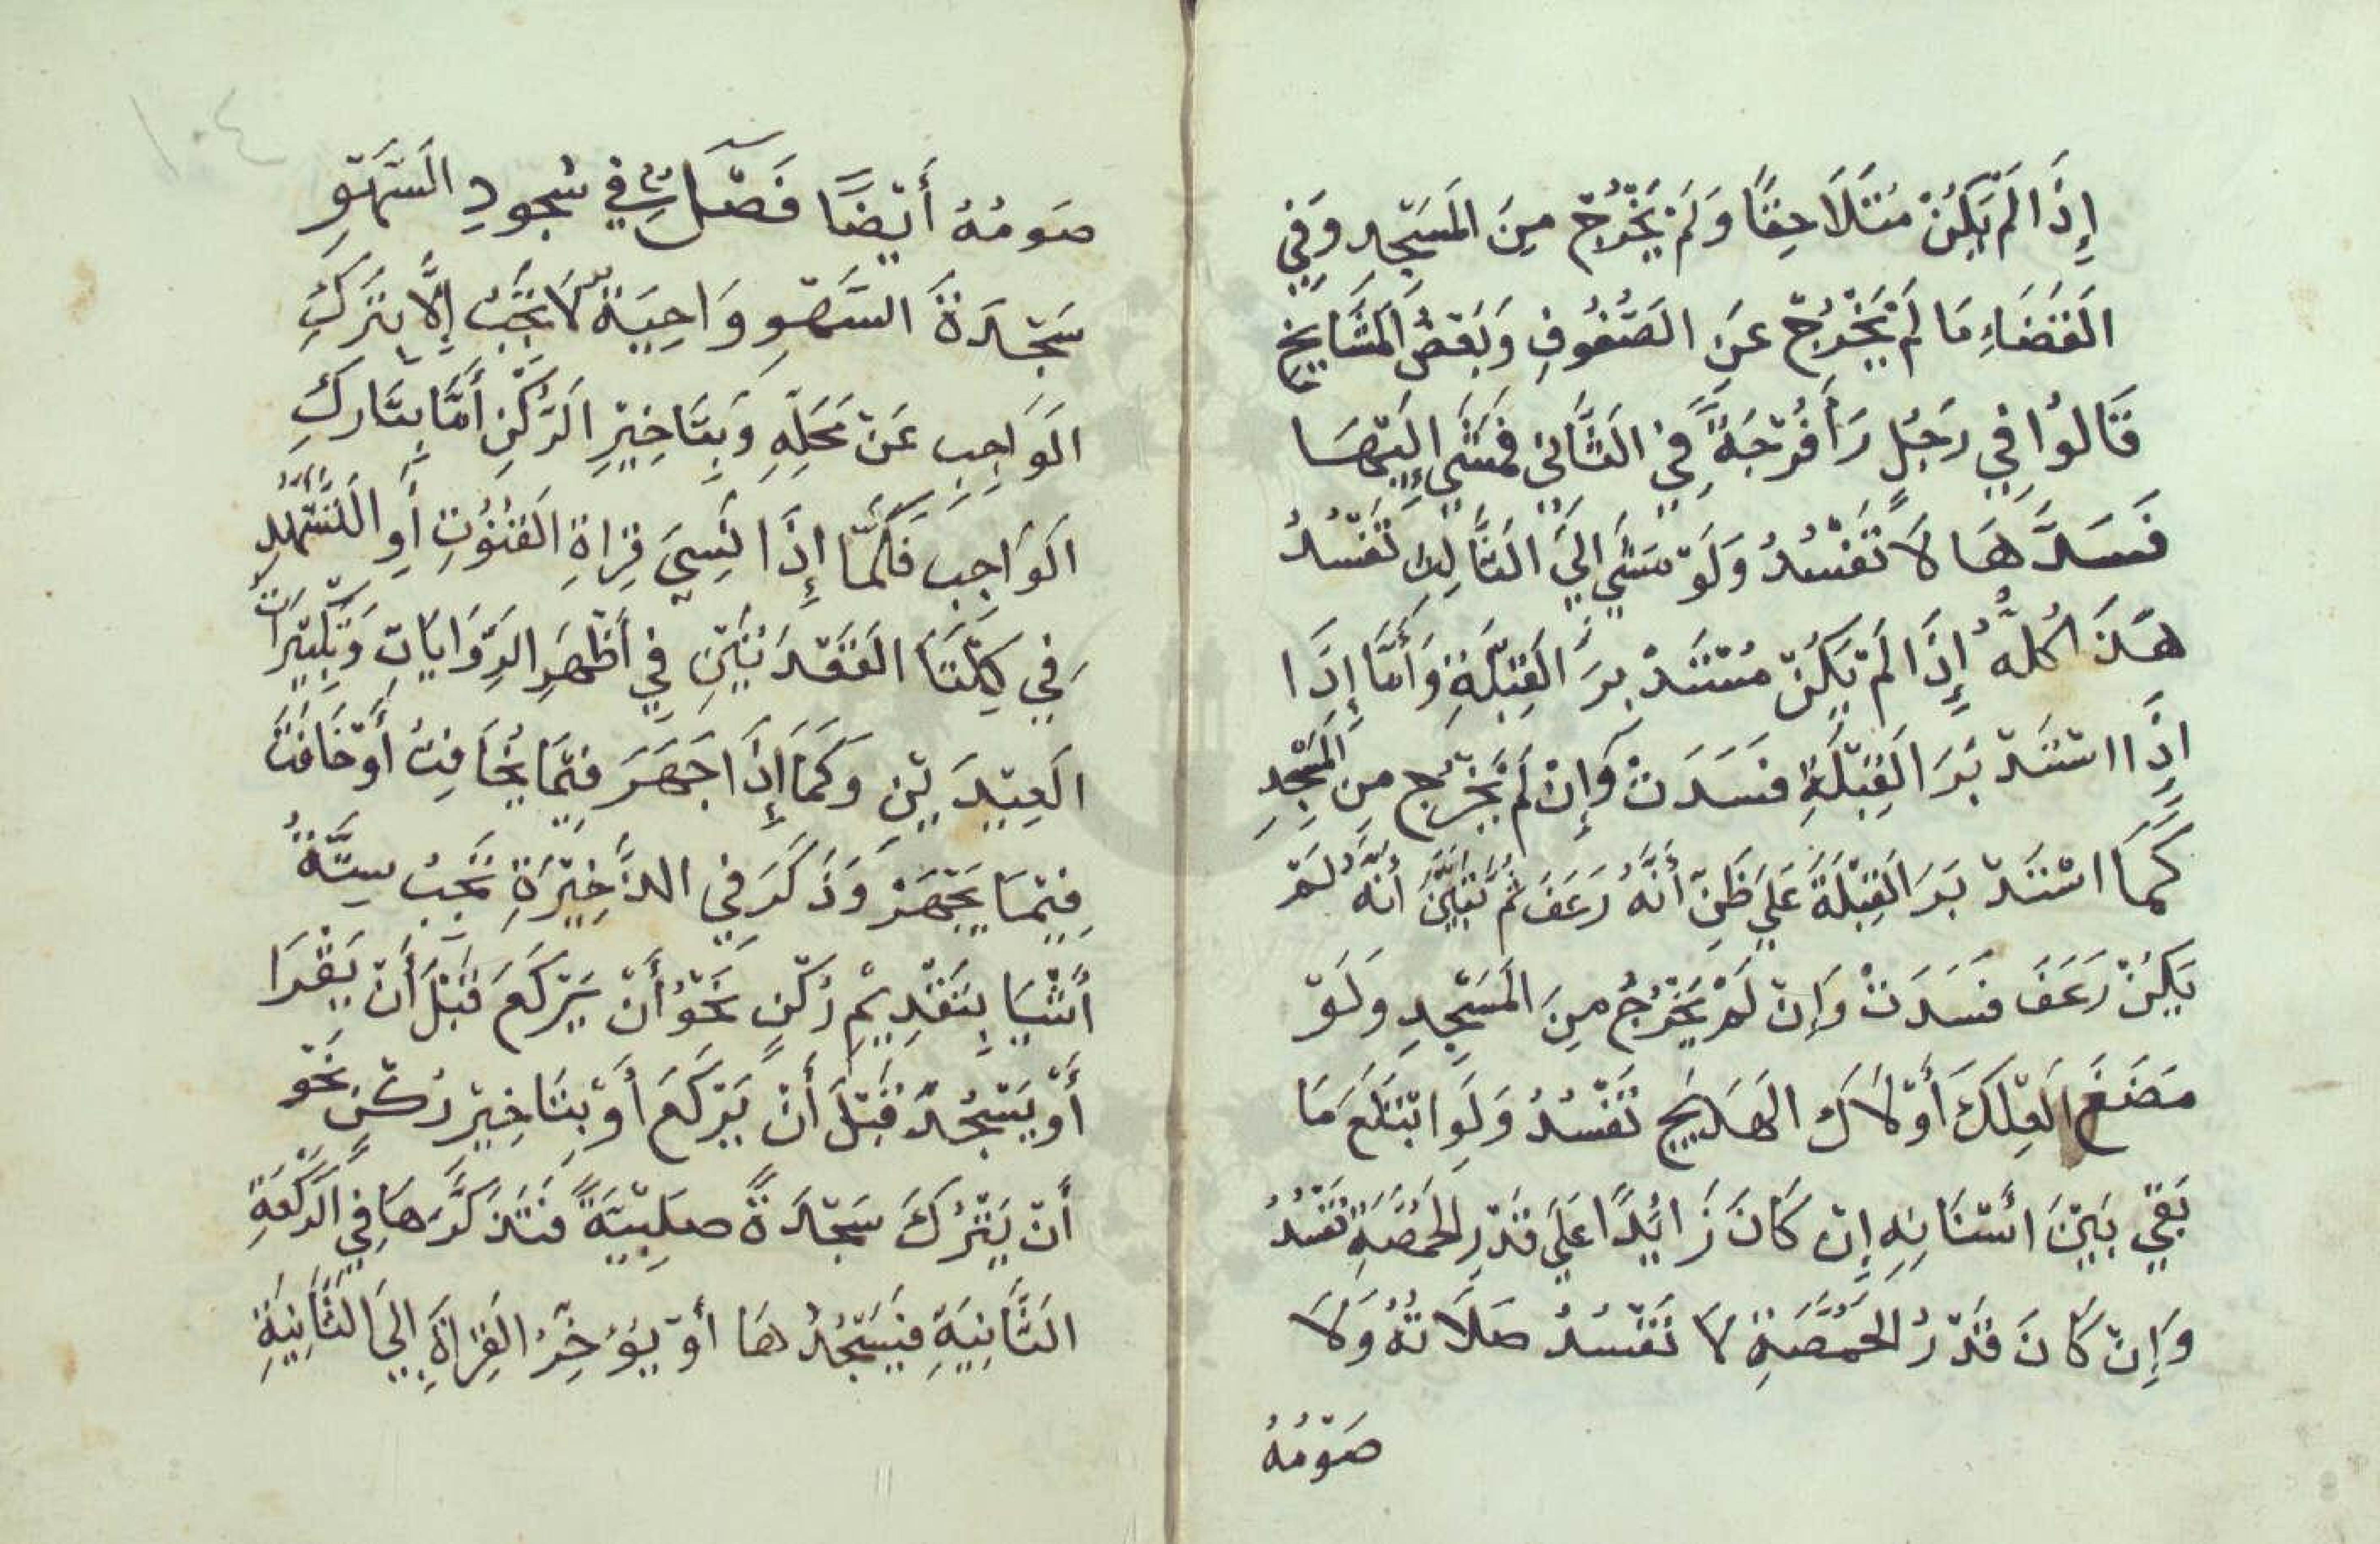 إِذَا لَمْ يَكُنْ مُتَلَاحِقًا وَلَمْ يَخْرُجْ مِنَ المَسْجِدِ وَفِي
الفَضَاءِ مَا لَمْ يَخْرُجْ عَنِ الصُّفُوفِ وَبَعْضُ المَشَايِخِ
قَالُوا فِي رَجُلٍ رَأَ فُرْجَةً فِي الثَّانِي فَمَشَي إِلَيْهَا
فَسَدَّهَا لَا تَفْسُدُ وَلَوْ مَشَي إِلَي الثَّالِثِ تَفْسُدُ
هَذَا كُلُّهُ إِذَا لَمْ يَكُنْ مُسْتَدْبِرَ القِبْلَةِ وَأَمَّا إِذَا
إِذَا اسْتَدْبَرَ القِبْلَةِ فَسَدَتْ وَإِنْ لَمْ يَخْرُج مِن المَسْجِدِ
كَمَا اسْتَدْبَرَ القِبْلَةَ عَلَي ظَنِّ أَنَّهُ رَعَفَ ثُمَّ تَبَيَّنَ أَنَّهُ لَمْ
يَكُنْ رَعَفَ فَسَدَتْ وَإِنْ لَمْ يَخْرُجْ مِنَ المَسْجِدِ وَلَوْ
مَضَغَ العِلْكَ أَوْ لَاكَ الهَلِيجِ تَفْسُدُ وَلَوِ ابْتَلَعَ مَا
بَقِيَ بَيْنَ اسْنَانِهِ إِنْ كَانَ زَائِدًا عَلَي قَدْرِ الحِمَّصَةِ تَفْسُدُ
وَإِنْ كَانَ قَدْرُ الحِمَّصَةِ لَا تَفْسُدُ صَلَاتُهُ وَلَا
صَوْمُهُ
صَومُهُ أَيْضًا فَصْلٌ فِي سُجُودِ السَّهْوِ
سَجْدَةَ السَّهْوِ وَاجِبَةٌ لَا تَجِبُ إِلَّا بِتَرْكِ
الوَاجِبِ عَنْ مَحَلِّهِ وَبِتَاخِيْرِ الرُّكْنِ أَمَّا بِتَارِكِ
الوَاجِبِ فَكَمَا إِذَا نَسِيَ قِرَاةِ القُنُوتِ أَوِ التَّشَهُّدِ
فِي كِلْتَا القَعْدَتَيْنِ فِي أَظْهَرِ الرِّوَايَاتِ وَتَكْبِيْرَاتُ
العِيْدَيْنِ وَكَمَا إِذَا جَهَرَ فِيْمَا يُخَافِتُ أَوْ خَافَتَ
فِيْمَا يَجْهَرُ وَذَكَرَ فِي الذَّخِيْرَةِ تَجِبُ سِتَّةُ
أَشْيَا بِتَقْدِيْمِ رُكْنٍ نَحْوُ أَنْ يَرْكَعَ قَبْلَ أَنْ يَقْرَا
أَوْ يَسْجُدْ قَبْلَ أَنْ يَرْكَعَ أَوْ بِتَاخِيْرِ رُكْنٍ نَحْوَ
أَنْ يَتْرُكَ سَجْدَةً صلِبْيَّةً فَتَذَكَّرَهَا فِي الرَّكْعَةِ
الثَّانِيَةِ فَيَسْجُدُهَا أَوْ يُؤَخِّرُ القِرَاةَ إِلَي الثَّانِيَةِ
١٠٤